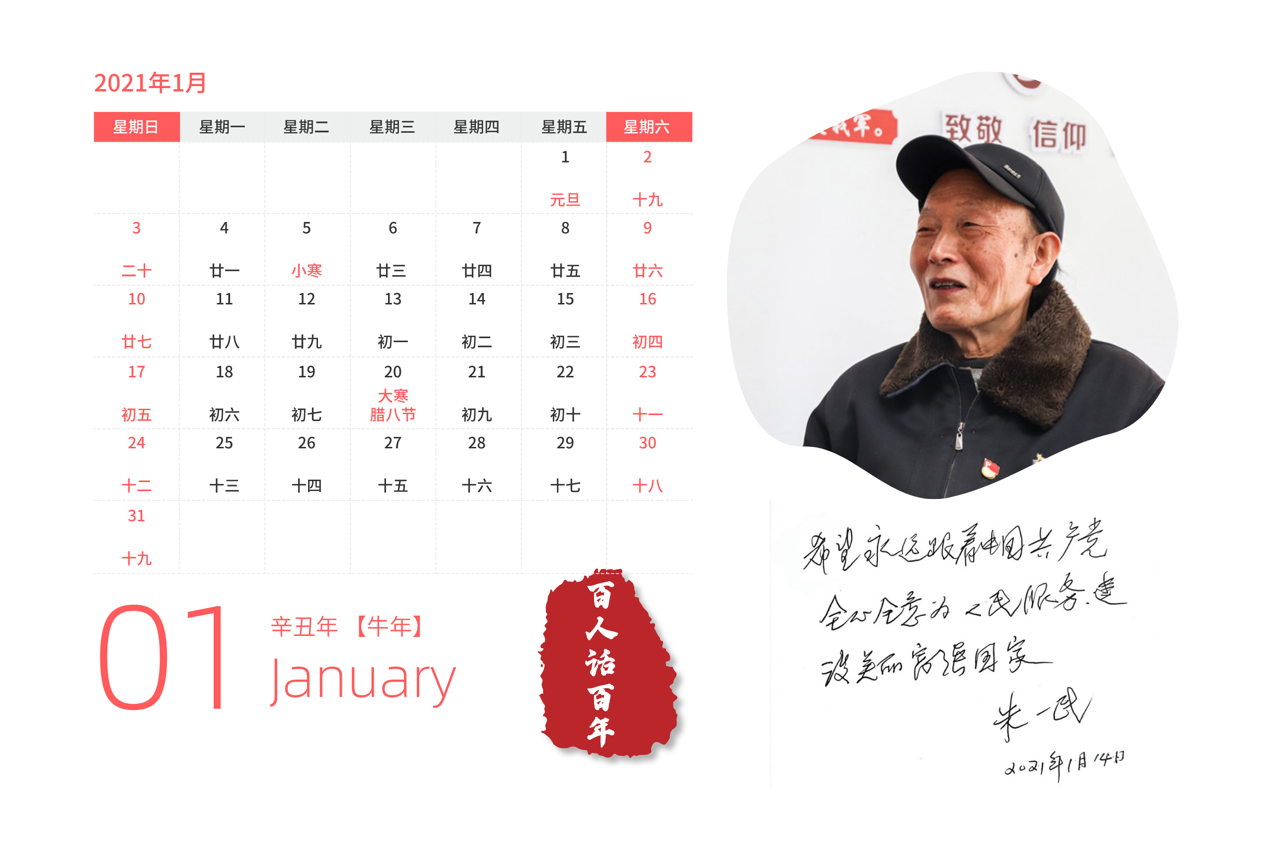 2021年1月
星期日 星期一 星期二 星期三 星期四 星期五 星期六
1 2
元旦 十九
3 4 5 6 7 8 9
二十 廿一 小寒 廿三 廿四 廿五 廿六
10 11 12 13 14 15 16
廿七 廿八 廿九 初一 初二 初三 初四
17 18 19 20 21 22 23
大寒
初五 初六 初七 腊八节 初九 初十 十一
24 25 26 27 28 29 30
十二 十三 十四 十五 十六 十七 十八
31
十九
01
辛丑年 【牛年】
January
百人话百年
我军。
致敬 信仰
希望永远跟着中国共产党
全心全意为人民服务.建
设美丽富强国家
朱一民
2021年1月14日